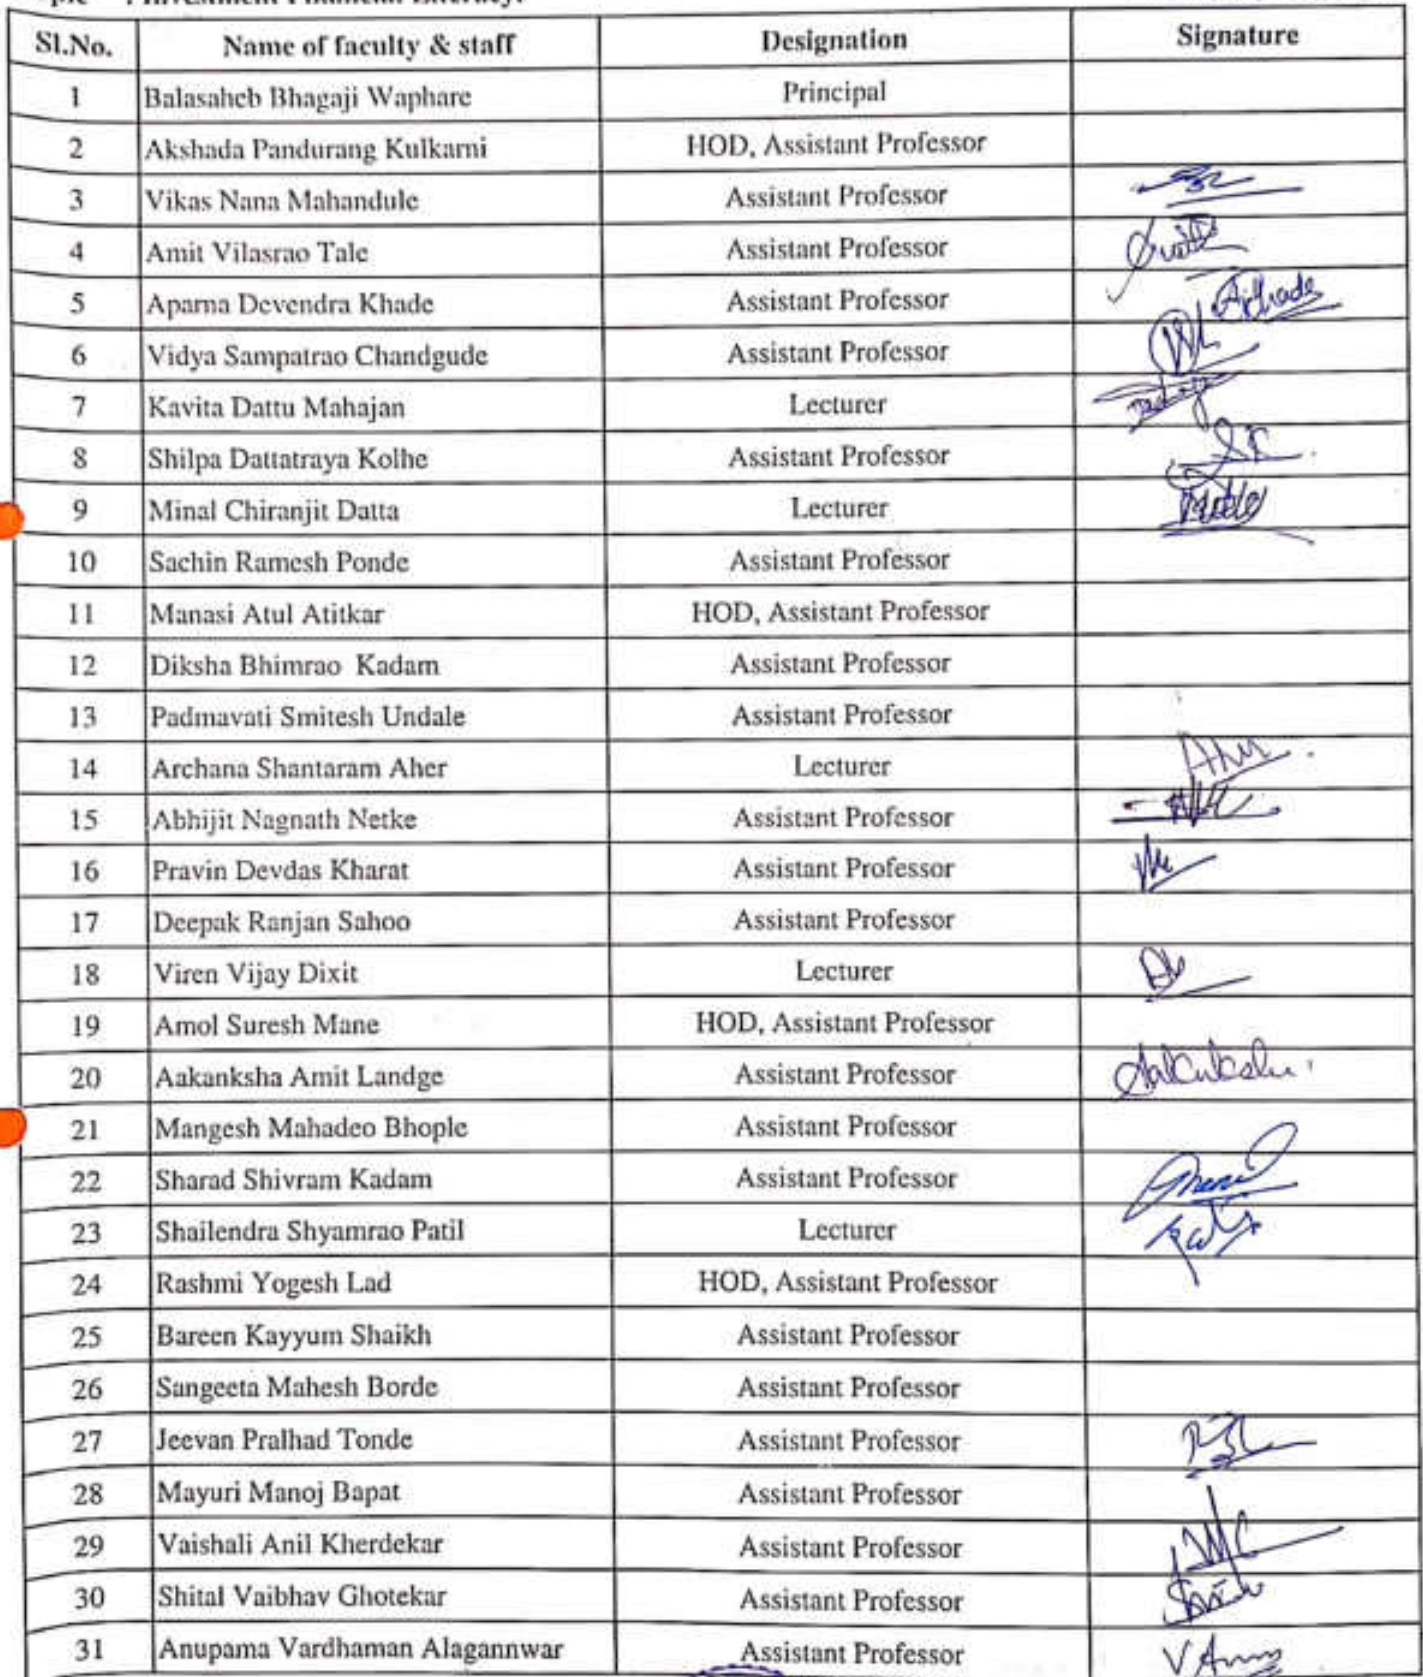 : Investment Financial Literacy.
Sl.No. Name of faculty & staff Designation Signature
1 Balasaheb Bhagaji Waphare Principal
2 Akshada Pandurang Kulkarni HOD, Assistant Professor
3 Vikas Nana Mahandule Assistant Professor
4 Amit Vilasrao Tale Assistant Professor
5 Aparna Devendra Khade Assistant Professor
6 Vidya Sampatrao Chandgude Assistant Professor
7 Kavita Dattu Mahajan Lecturer
8 Shilpa Dattatraya Kolhe Assistant Professor
9 Minal Chiranjit Datta Lecturer
10 Sachin Ramesh Ponde Assistant Professor
11 Manasi Atul Atitkar HOD, Assistant Professor
12 Diksha Bhimrao Kadam Assistant Professor
13 Padmavati Smitesh Undale Assistant Professor
14 Archana Shantaram Aher Lecturer
15 Abhijit Nagnath Netke Assistant Professor
16 Pravin Devdas Kharat Assistant Professor
17 Deepak Ranjan Sahoo Assistant Professor
18 Viren Vijay Dixit Lecturer
19 Amol Suresh Mane HOD, Assistant Professor
20 Aakanksha Amit Landge Assistant Professor
21 Mangesh Mahadeo Bhople Assistant Professor
22 Sharad Shivram Kadam Assistant Professor
23 Shailendra Shyamrao Patil Lecturer
24 Rashmi Yogesh Lad HOD, Assistant Professor
25 Bareen Kayyum Shaikh Assistant Professor
26 Sangeeta Mahesh Borde Assistant Professor
27 Jeevan Pralhad Tonde Assistant Professor
28 Mayuri Manoj Bapat Assistant Professor
29 Vaishali Anil Kherdekar Assistant Professor
30 Shital Vaibhav Ghotekar Assistant Professor
31 Anupama Vardhaman Alagannwar Assistant Professor